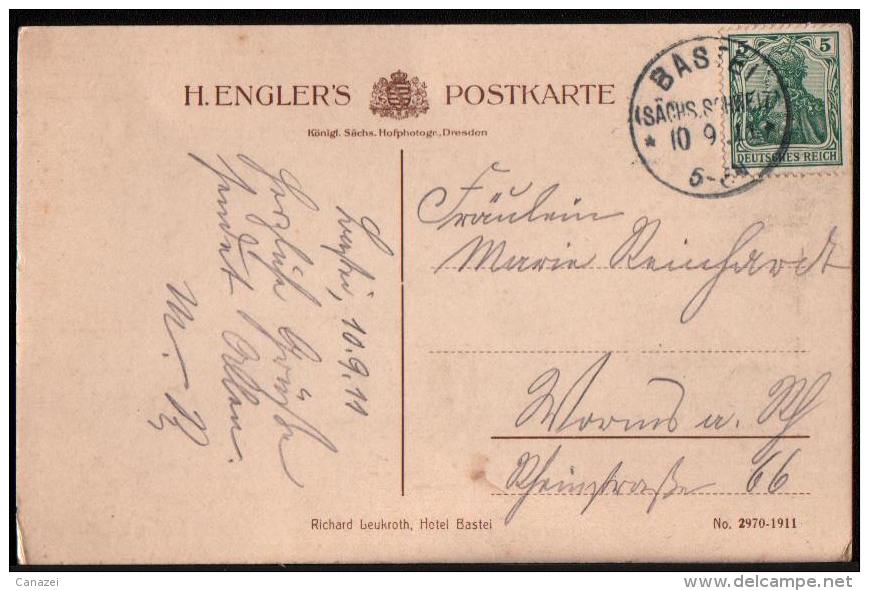 H. ENGLER'S POSTKARTE
Königl. Sächs. Hofphotogr., Dresden
BASTEI
(SÄCHS. SCHWEIZ)
* 10 9 11 *
5
DEUTSCHES REICH
Bastei, 10.9.11
Herzliche Grüße
sendet Allen
M. R.
Fräulein
Marie Reinhardt
Worms a. Rh
Rheinstraße 66
Richard Leukroth, Hotel Bastei
No. 2970-1911
Canazei
delcampe.net